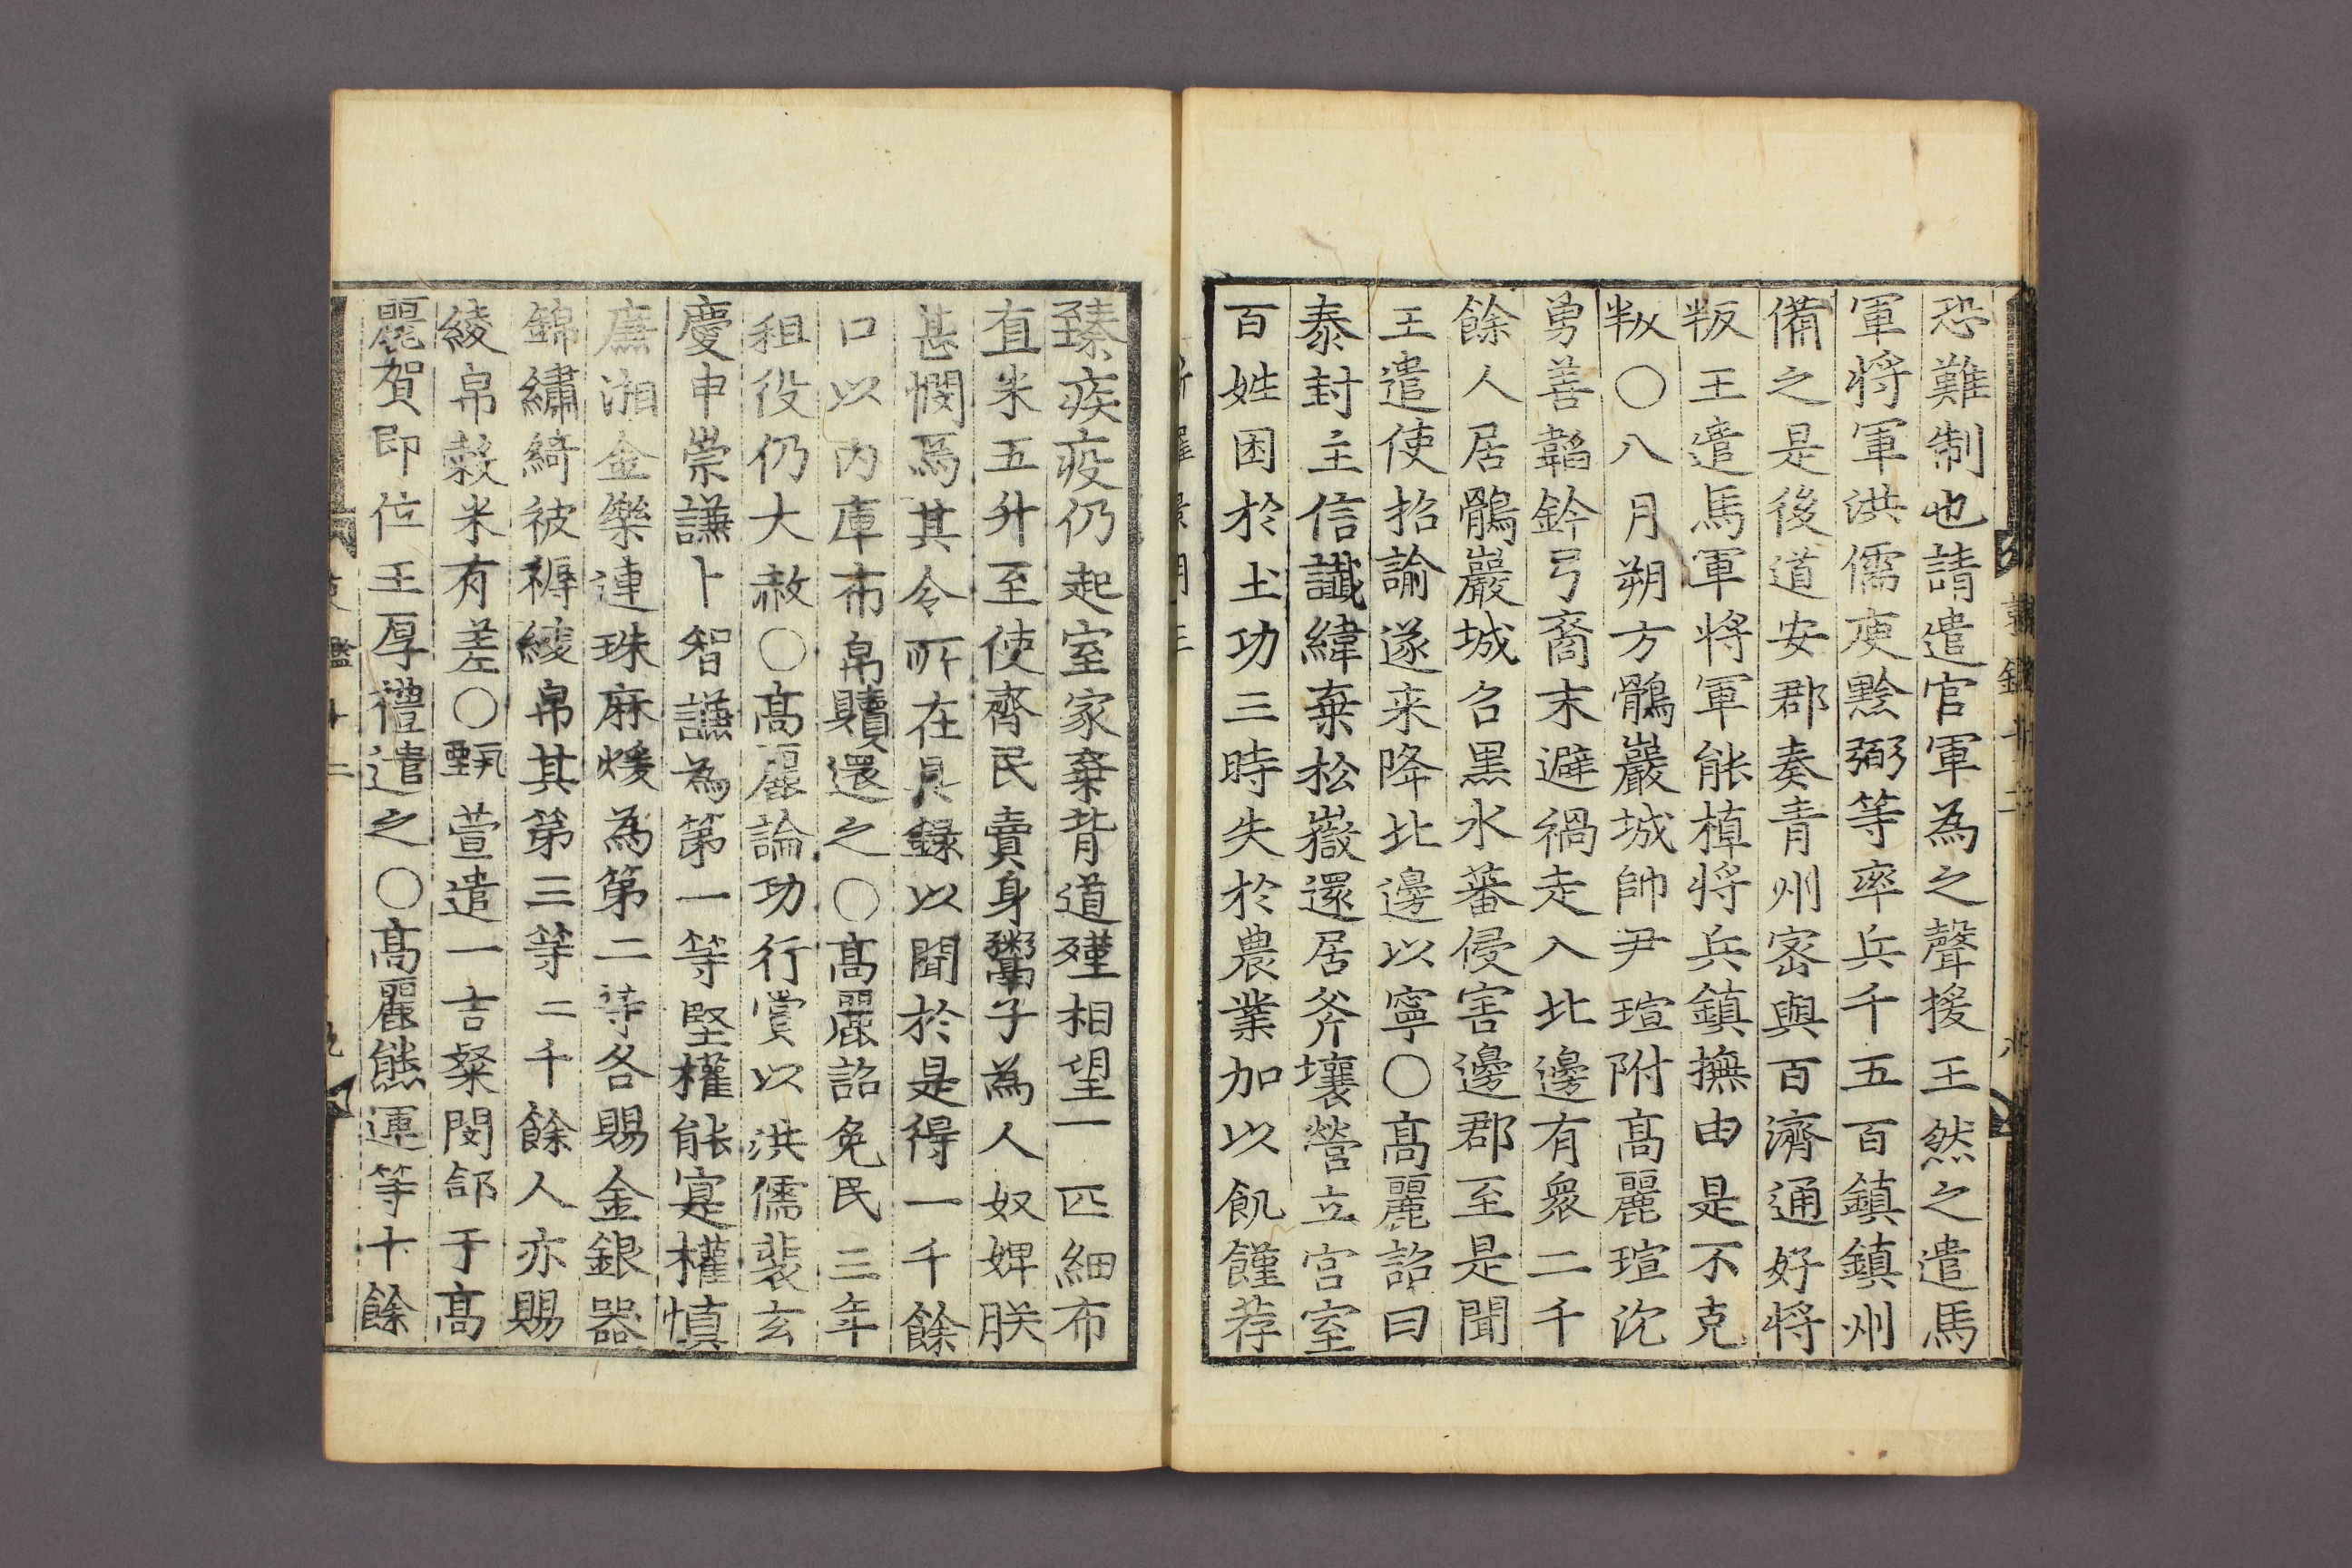 恐難制也請遣官軍為之聲援王然之遣馬
軍將軍洪儒庾黔弼等率兵千五百鎮鎮州
備之是後道安郡奏青州密與百濟通好將
叛王遣馬軍將軍能植將兵鎮撫由是不克
叛○八月朔方鶻巖城帥尹瑄附高麗瑄沈
勇善韜鈐弓裔末避禍走入北邊有衆二千
餘人居鶻巖城召黑水蕃侵害邊郡至是聞
王遣使招諭遂来降北邊以寧○高麗詔曰
泰封主信讖緯棄松嶽還居斧壤營立宮室
百姓困於土功三時失於農業加以飢饉荐
臻疾疫仍起室家棄背道殣相望一匹細布
直米五升至使齊民賣身鬻子為人奴婢朕
甚憫焉其令所在具錄以聞於是得一千餘
口以內庫布帛贖還之○高麗詔免民三年
租役仍大赦○高麗論功行賞以洪儒裴玄
慶申崇謙卜智謙為第一等堅權能寔權慎
廉湘金樂連珠麻煖為第二等各賜金銀器
錦繡綺被褥綾帛其第三等二千餘人亦賜
綾帛穀米有差○甄萱遣一吉粲閔郃于高
麗賀即位王厚禮遣之○高麗熊運等十餘